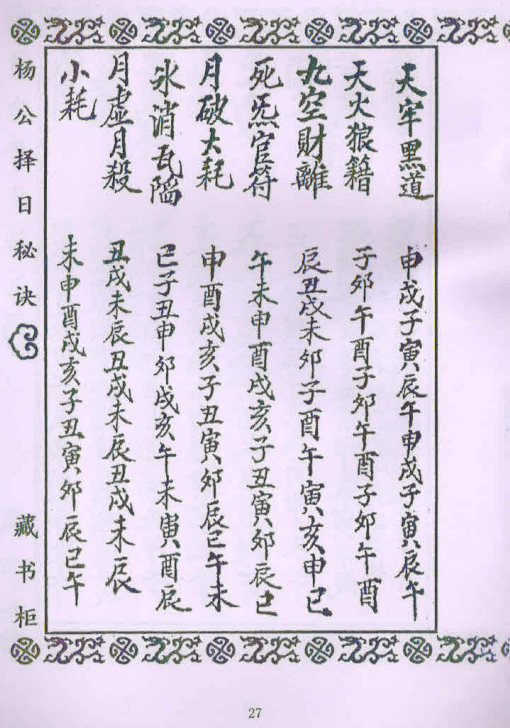 天牢黑道 申戌子寅辰午申戌子寅辰午
天火狼籍 子卯午酉子卯午酉子卯午酉
九空財離 辰丑戌未卯子酉午寅亥申巳
死炁官符 午未申酉戌亥子丑寅卯辰巳
月破大耗 申酉戌亥子丑寅卯辰巳午未
氷消瓦陷 巳子丑申卯戌亥午未寅酉辰
月虛月殺 丑戌未辰丑戌未辰丑戌未辰
小耗 未申酉戌亥子丑寅卯辰巳午
杨公择日秘诀
藏书柜
27